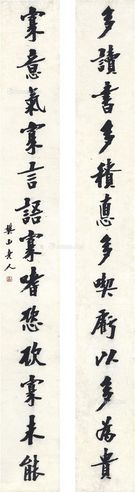 多讀書多積悳多喫虧以多為貴
寡意氣寡言語寡嗜慾欲寡未能
樊山老人